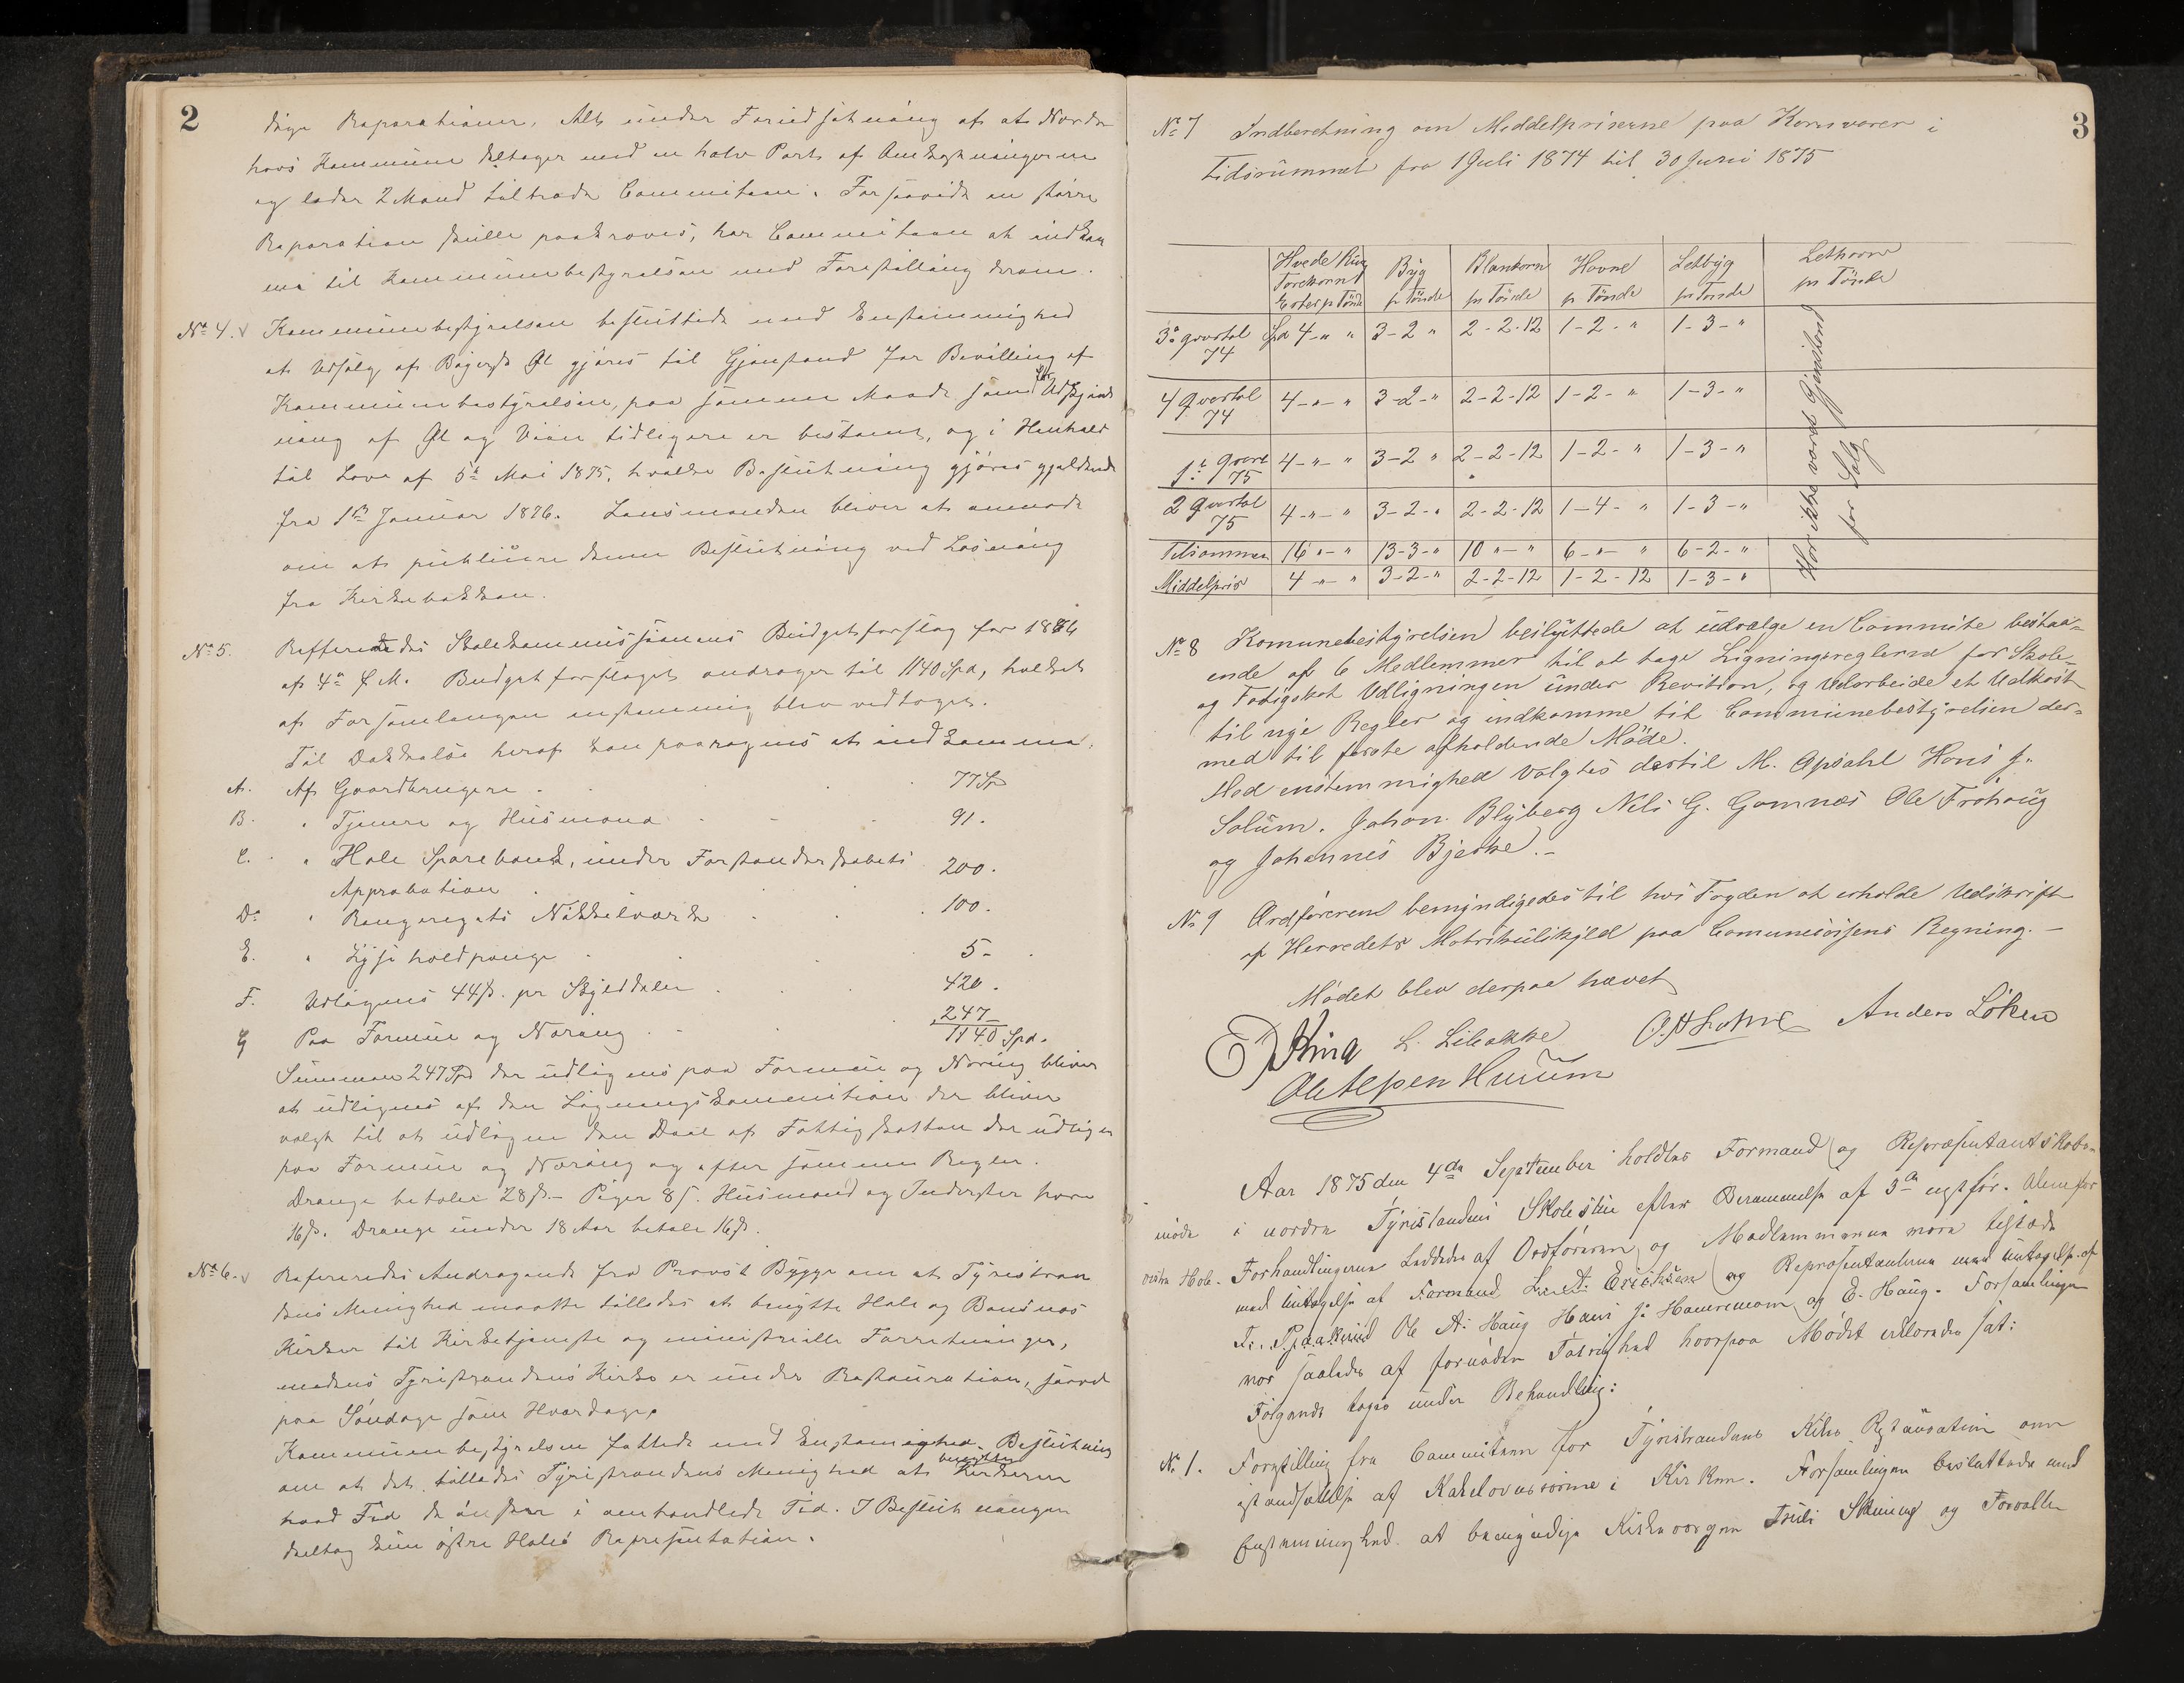 2
dige Reparationer. Alt under Forudsætning af at Norder
hovs Kommune deltager med en halv Part af Omkostningerne
og lader 2 Mand tiltræde Commiteen. Forsaavidt en større
Reparation skulle paakræves, har Commiteen at indkom
me til Kommunebestyrelsen med Forestilling derom.
No 4. Kommunebestyrelsen besluttede med Enstemmighed
at Udsalg af Bayersk Øl gjøres til Gjenstand for Bevilling af
Kommunebestyrelsen, paa samme Maade som for Udskjænk
ning af Øl og Viin tidligere er bestemt, og i Henhold
til Lov af 5te Mai 1875, hvilken Beslutning gjøres gjeldende
fra 1ste Januar 1876. Lensmanden bliver at anmode
om at publicere denne Beslutning ved Læsning
fra Kirkebakken.
No 5. Refferedes Skolekommissionens Budgetforslag for 1876
af 4de d. M. Budgetforslaget andrager til 1140 Spd, hvilket
af Forsamlingen enstemmig blev vedtaget.
Til Dækkelse heraf kan paaregnes at indkomme.
A. Af Gaardbrugere 77 Spd
B. " Tjenere og Husmænd 91.
C. " Hole Sparebank, under Forstanderskabets
Approbation 200.
D. " Ringeriges Nikkelværk 100.
E. " Lysehold penge 5 -
F. Udlignes 44 s. pr Skylddaler 420.
G Paa Formue og Næring 247
1140 Spd.
Summen 247 Spd der udlignes paa Formue og Næring bliver
at udlignes af den Ligningskommission der bliver
valgt til at udligne den Deel af Fattigskatten der udlignes
paa Formue og Næring og efter samme Regler.
Drenge betaler 28 s. - Piger 8 s. Husmænd og Inderster hver
16 s. Drenge under 18 Aar betale 16 s.
No 6. Refereredes Andragende fra Provst Bygge om at Tyristran
dens Menighed maatte tillades at benytte Hole og Bønsnæs
Kirker til Kirketjeneste og ministerielle Forretninger,
medens Tyristrandens Kirke er under Restauration, saavel
paa Søndage som Hverdage.
Kommunebestyrelsen fattede med Enstemighed Beslutning
om at det tillades Tyristrandens Menighed at benytte Kirkerne
hvad Tid de ønsker i omhandlede Tid. I Beslutningen
deltog kun østre Holes Representation.
3
No 7 Indberetning om Middelpriserne paa Kornvarer i
Tidsrummet fra 1 Juli 1874 til 30 Juni 1875
Hvede Rug Torekorn Erter pr Tönde Byg pr Tönde Blankorn pr Tönde Havre pr Tönde Letbyg pr Tönde Lethavre pr Tönde
3de qvartal 74 Spd 4 - " " 3 - 2 " 2 - 2 - 12 1 - 2 - " 1 - 3 - "
4 Qvartal 74 4 - " - " 3 - 2 - " 2 - 2 - 12 1 - 2 - " 1 - 3 - "
1te Qvart 75 4 - " - " 3 - 2 " 2 - 2 - 12 1 - 2 - " 1 - 3 - "
2 Qvartal 75 4 - " - " 3 - 2 - " 2 - 2 - 12 1 - 4 - " 1 - 3 - "
Tilsammen 16 " - " 13 - 3 - " 10 " - " 6 - " - " 6 - 2 - "
Middelpris 4 - " - " 3 - 2 - " 2 - 2 - 12 1 - 2 - 12 1 - 3 - "
Har ikke været Gjenstand
for Salg
No 8 Komunebestyrelsen besluttede at udvalge en Commite bestaa=
ende af 6 Medlemmer til at tage Ligningsreglerne for Skole=
og Fatigskat Udligningen under Revition, og Udarbeide et Udkast
til nye Regler og indkomme til Communebestyrelsen der=
med til første afholdende Møde.
Med enstemmighed valgtes dertil M. Opsahl Hans J.
Solum. Johan Blyberg Nils G. Gomnæs Ole Frohaug
og Johannes Bjerke. -
No 9 Ordføreren bemyndigedes til hos Fogden at erholde Udskrift
af Herredets Matrikulskyld paa Comunekassens Regning. -
Mødet blev derpaa hævet
L. Libakke Anders Löken
Ole Alfsen Hurum
Aar 1875 den 4de September holdtes Formand og Repræsentantskabs
møde i nordre Tyristrandens Skolestue efter Berammelse af 3de
Forhandlingerne leddedes af Ordføreren, og Medlemmerne vare tilstede
med Undtagelse af Formænd Erichsen og Repræsentanterne med Undtagelse af
Ole A. Haug Hans J. Hamremoen og E. Haug. Forsamlingen
var saaledes af fornøden Talrighed hvorpaa Mødet erklæredes sat:
Følgende toges under Behandling:
No 1. Forestilling fra Commiteen for Tyristrandens Kirkes Restauration om
istandsættelse af Kakelovnsrörene i Kirken. Forsamlingen besluttede med
Enstemmighed at bemyndige Kirkeværgen Truls Skinnes og Forvalter